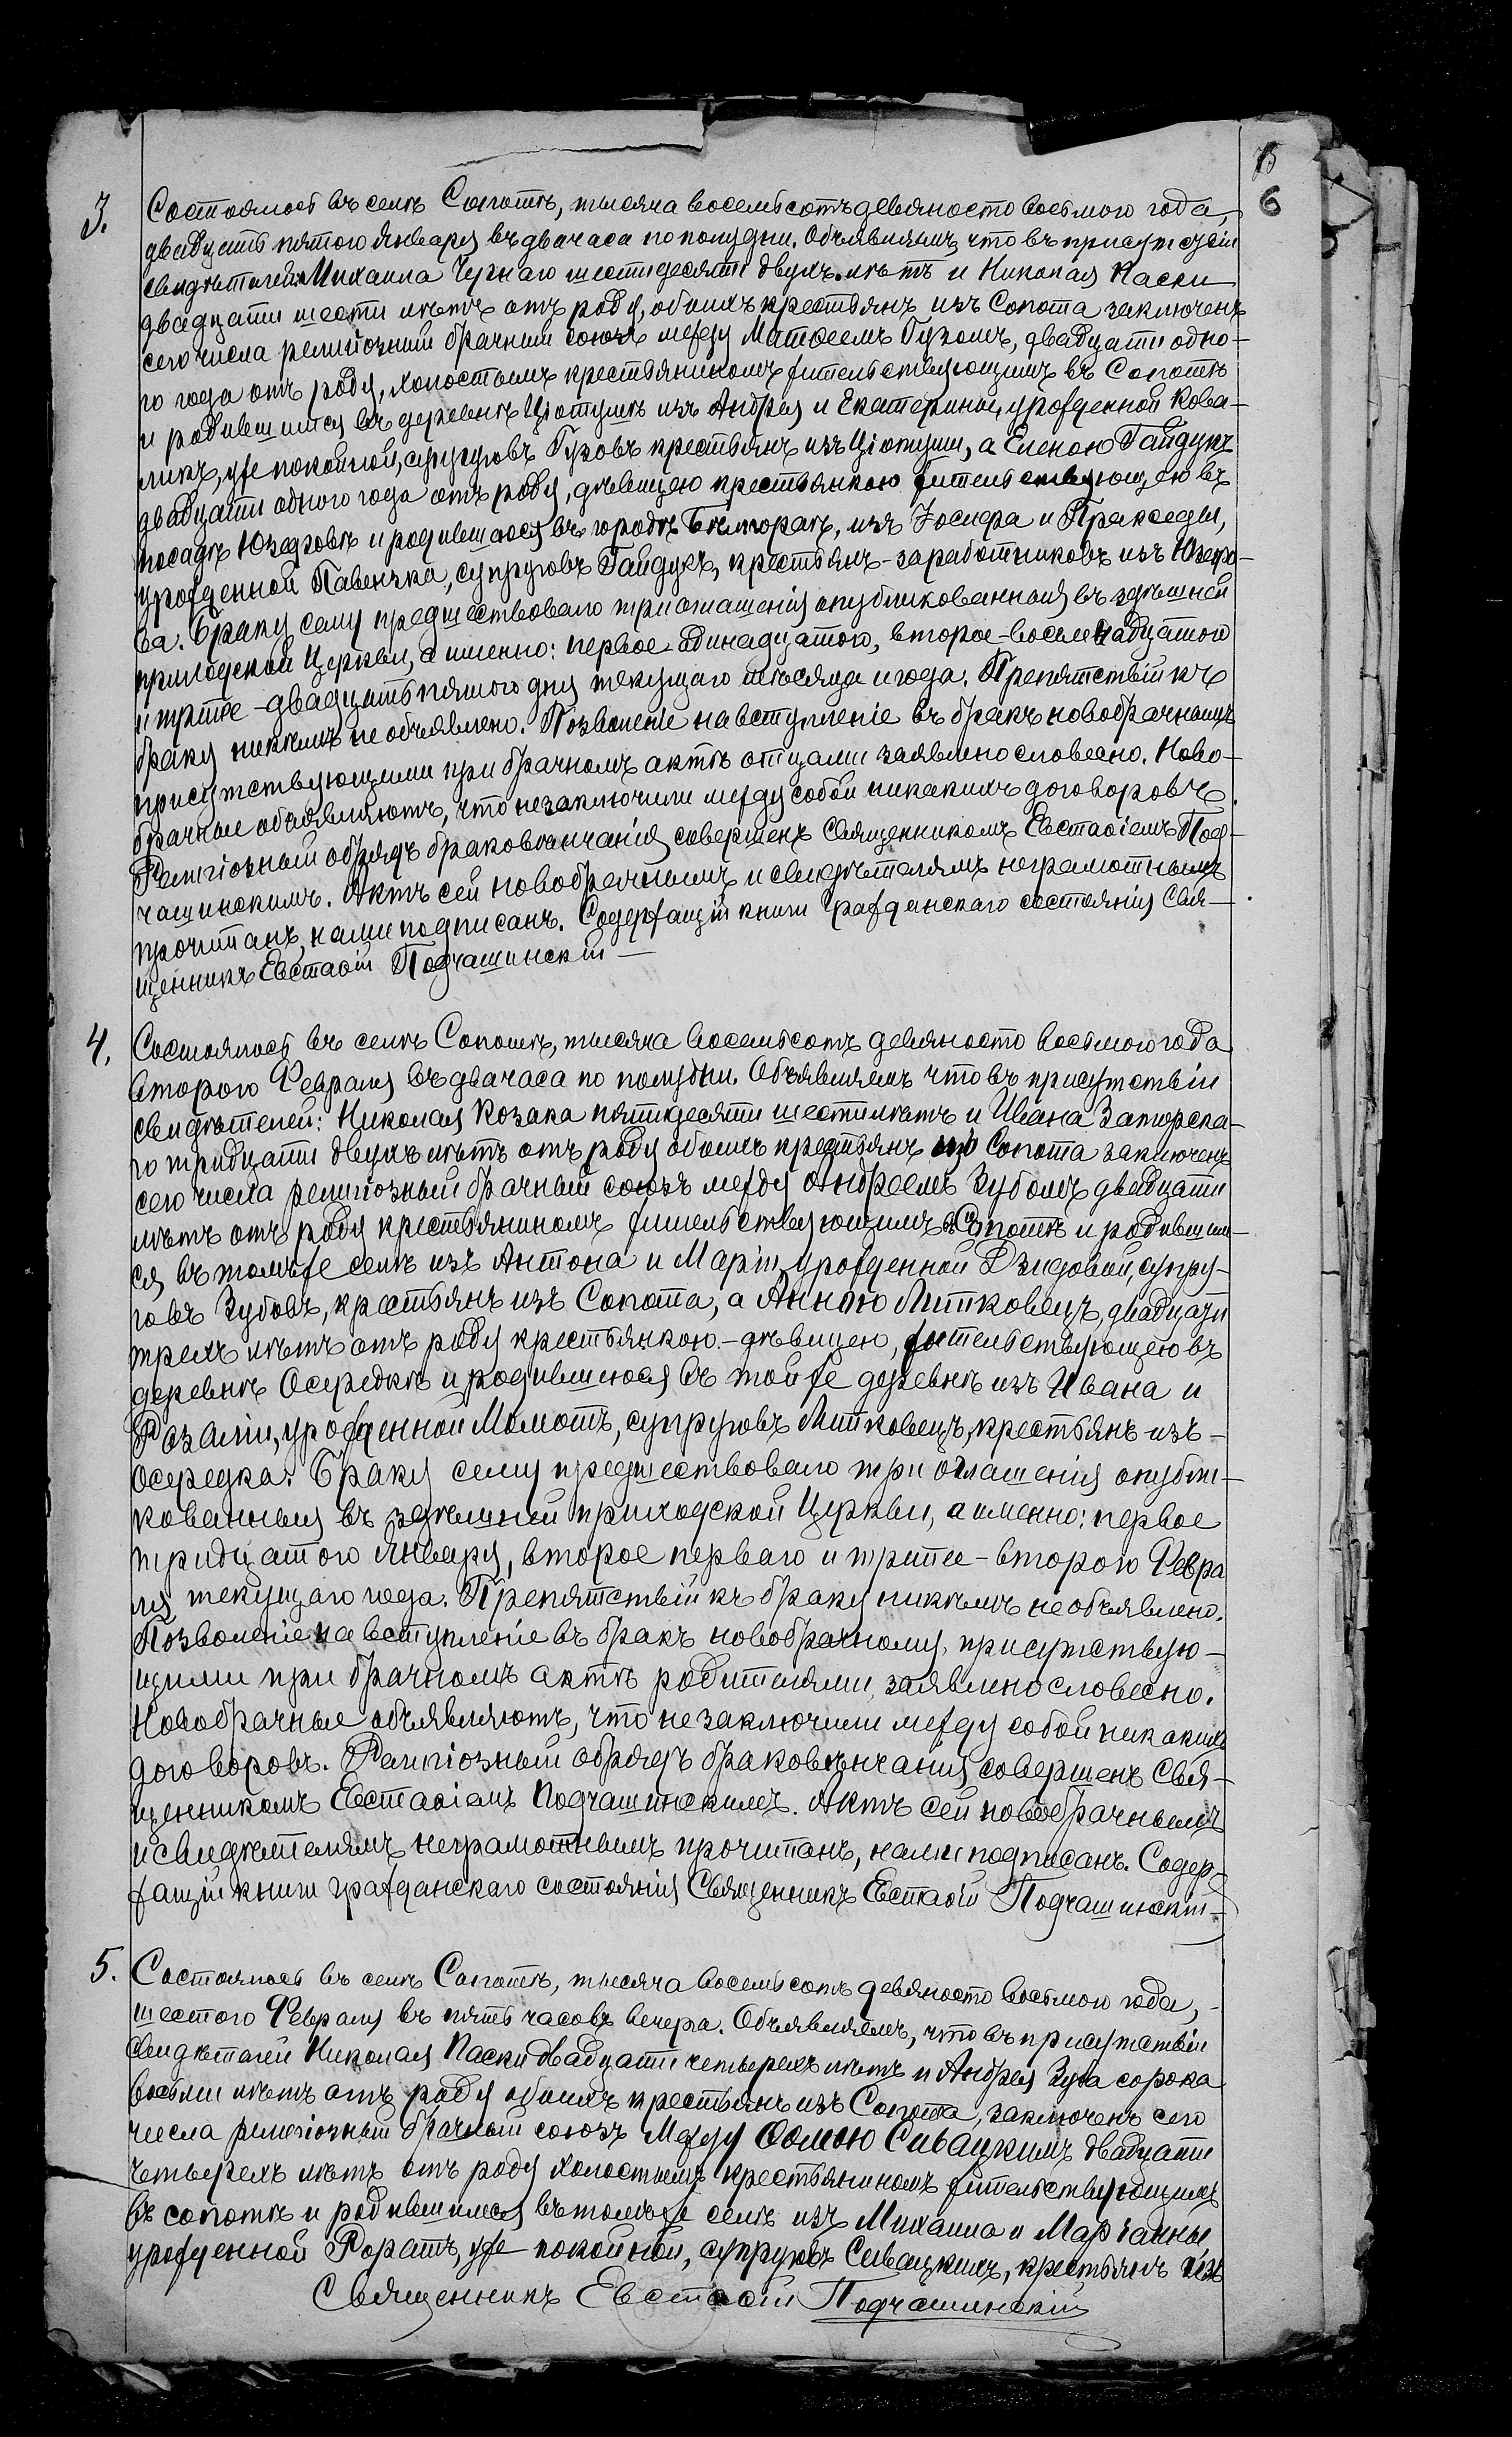 6
3. Состоялось въ селѣ Сопотѣ, тысяча восемьсотъ девяносто восьмого года,
двадцать пятого Января въ два часа по полудни. Объявляемъ, что въ присутствіи
свидѣтелей Михаила Чернаго шестидесяти двухъ лѣтъ и Николая Паски
двадцати шести лѣтъ отъ роду, обоихъ крестьянъ изъ Сопота заключенъ
сего числа религіозный брачный союзъ между Матѳеемъ Гузомъ, двадцати одно-
го года отъ роду, холостымъ крестьяниномъ жительствующимъ въ Сопотѣ
и родившимся въ деревнѣ Ціотушѣ изъ Андрея и Екатерины, урожденной Кова-
ликъ, уже покойной, супруговъ Гузовъ крестьянъ изъ Ціотуши, а Еленою Гайдукъ
двадцати одного года отъ роду, дѣвицею крестьянкою жительствующею въ
посадѣ Юзефовѣ и родившаюся въ городѣ Бѣлгораѣ, изъ Іосифа и ПраксЕды,
урожденной Павенчка, супруговъ Гайдукъ, крестьянъ-заработниковъ изъ Юзефо-
ва. Браку сему предшествовало три оглашенія опубликованныя въ здѣшней
приходской Церкви, а именно: первое-адинадцатого, второе-восемнадцатого
и третье-двадцать пятого дня текущаго мѣсяца и года. Препятствій къ
браку никѣмъ не объявлено. Позволеніе на вступленіе въ бракъ новобрачнымъ
присутствующими при брачномъ актѣ отцами заявлено словесно. Ново-
брачные объявляютъ, что незаключили между собой никакихъ договоровъ.
Религіозный обрядъ браковѣнчанія совершенъ Священникомъ Евстаѳіемъ Под-
чашинскимъ. Актъ сей новобрачнымъ и свидѣтелямъ неграмотнымъ
прочитанъ, нами подписанъ. Содержащій книги гражданскаго состоянія Свя-
щенникъ Евстаѳій Подчашинскій —
4. Состоялось въ селѣ Сопотѣ, тысяча восемьсотъ девяносто восьмого года
второго Февраля въ два часа по полудни. Объявляемъ что въ присутствіи
свидѣтелей: Николая Козака пятидесяти шести лѣтъ и Ивана Заторска-
го тридцати двухъ лѣтъ отъ роду обоихъ крестьянъ изъ Сопота заключенъ
сего числа религіозный брачный союзъ между Андреемъ Зубомъ двадцати
лѣтъ отъ роду крестьяниномъ жительствующимъ въ Сопотѣ и родившим-
ся въ томъ же селѣ изъ Антона и Маріи, урожденной Дзидовой, супру-
говъ Зубовъ, крестьянъ изъ Сопота, а Анною Литковецъ, двадцати
трехъ лѣтъ отъ роду крестьянкою-дѣвицею, жительствующею въ
деревнѣ Осередкѣ и родившеюся въ той же деревнѣ изъ Ивана и
Розаліи, урожденной Момотъ, супруговъ Литковецъ, крестьянъ изъ-
Осередка. Браку сему предшествовало три оглашенія опубли-
кованныя въ здѣшней приходской Церкви, а именно: первое
тридцатого Января, второе перваго и третее-второго Февра
ля, текущаго года. Препятствій къ браку никѣмъ не объявлено.
Позволеніе на вступленіе въ бракъ новобрачному, присутствую-
щими при брачномъ актѣ родителями, заявлено словесно.
Новобрачные объявляютъ, что не заключили между собой никакихъ
договоровъ. Религіозный обрядъ браковѣнчанія совершенъ Свя-
щенникомъ Евстаѳіемъ Подчашинскимъ. Актъ сей новобрачнымъ
и свидѣтелямъ неграмотнымъ прочитанъ, нами подписанъ. Содер-
жащій книги гражданскаго состоянія Священникъ Евстаѳій Подчашинскій-
5. Состоялось въ селѣ Сопотѣ, тысяча восемьсотъ девяносто восьмого года,
шестого Февраля въ пять часовъ вечера. Объявляемъ, что въ присутствіи
свидѣтелей Николая Паски двадцати четырехъ лѣтъ и Андрея Зуба сорока
восьми лѣтъ отъ роду обоихъ крестьянъ изъ Сопота, заключенъ сего
числа религіозный брачный союзъ Между Ѳомою Сивацкимъ двадцати
четырехъ лѣтъ отъ роду холостымъ крестьяниномъ жительствующимъ
въ сопотѣ и родившимся въ томъ же селѣ изъ Михаила и Маріанны
урожденной Ропатъ, уже покойной, супруговъ Сивацкихъ, крестьянъ изъ
Священникъ Евстаѳій Подчашинскій